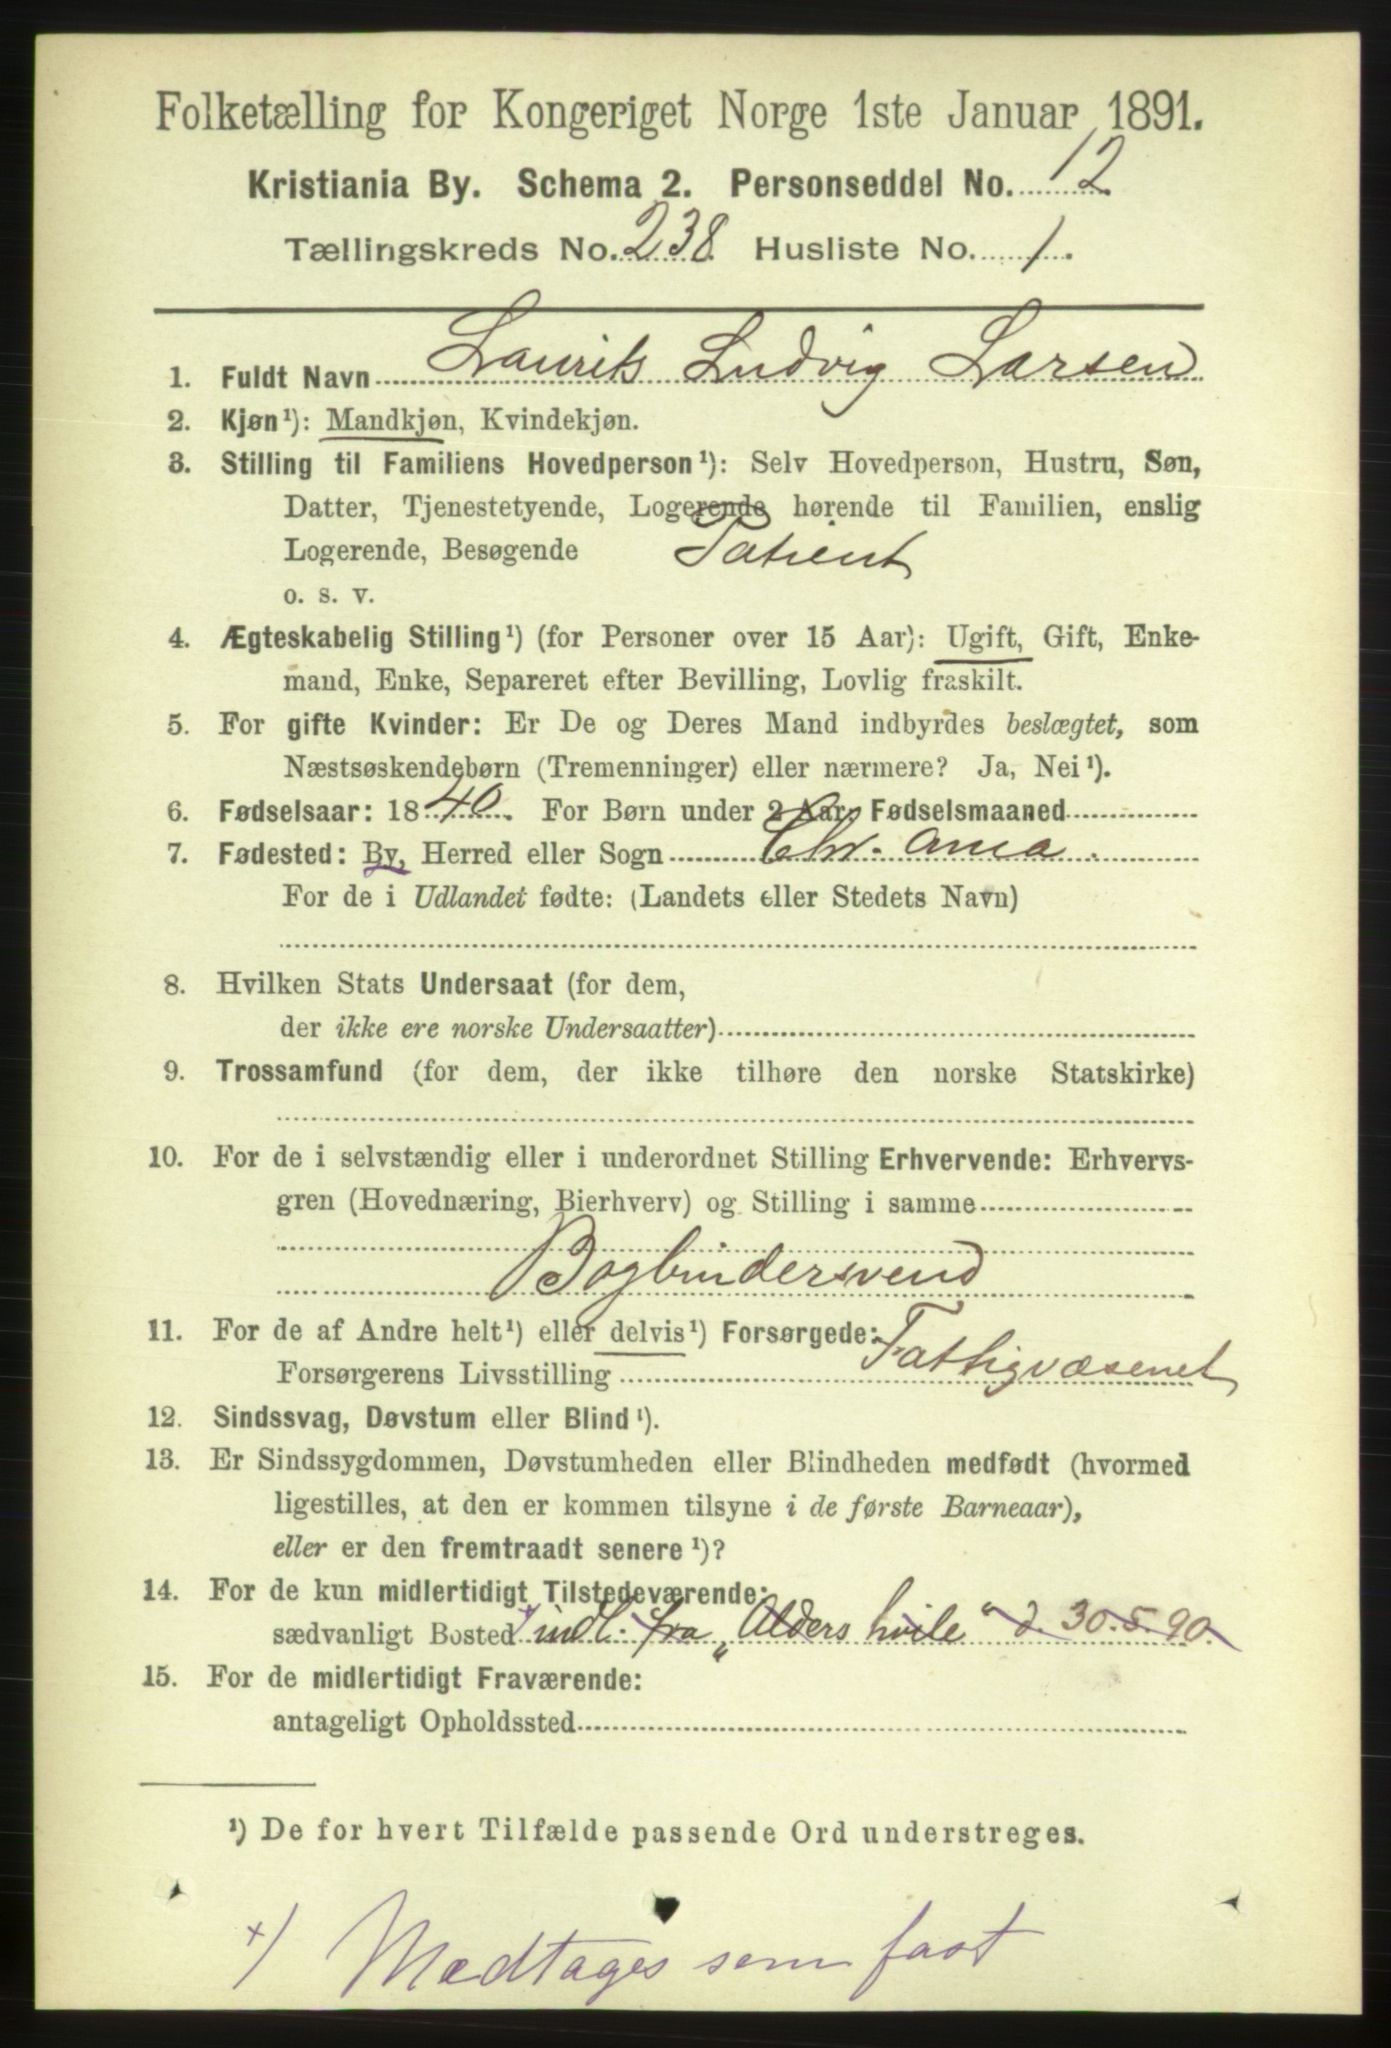 Folketælling for Kongeriget Norge 1ste Januar 1891.
Kristiania By. Schema 2. Personseddel No. 12
Tællingskreds No. 238. Husliste No. 1.
1. Fuldt Navn Laurits Ludvig Larsen
2. Kjøn¹): Mandkjøn, Kvindekjøn.
3. Stilling til Familiens Hovedperson¹): Selv Hovedperson, Hustru, Søn,
Datter, Tjenestetyende, Logerende hørende til Familien, enslig
Logerende, Besøgende Patient
o. s. v.
4. Ægteskabelig Stilling¹) (for Personer over 15 Aar): Ugift, Gift, Enke-
mand, Enke, Separeret efter Bevilling, Lovlig fraskilt.
5. For gifte Kvinder: Er De og Deres Mand indbyrdes beslægtet, som
Næstsøskendebørn (Tremenninger) eller nærmere? Ja, Nei¹).
6. Fødselsaar: 1840. For Børn under 2 Aar, Fødselsmaaned
7. Fødested: By, Herred eller Sogn Chr. ania.
For de i Udlandet fødte: (Landets eller Stedets Navn)
8. Hvilken Stats Undersaat (for dem,
der ikke ere norske Undersaatter)
9. Trossamfund (for dem, der ikke tilhøre den norske Statskirke)
10. For de i selvstændig eller i underordnet Stilling Erhvervende: Erhvervs-
gren (Hovednæring, Bierhverv) og Stilling i samme
Bogbindersvend
11. For de af Andre helt¹) eller delvis¹) Forsørgede:
Forsørgerens Livsstilling Fattigvæsenet
12. Sindssvag, Døvstum eller Blind¹).
13. Er Sindssygdommen, Døvstumheden eller Blindheden medfødt (hvormed
ligestilles, at den er kommen tilsyne i de første Barneaar),
eller er den fremtraadt senere¹)?
14. For de kun midlertidigt Tilstedeværende:
sædvanligt Bosted + indl. fra „Alders hvile“ d. 30.5.90.
15. For de midlertidigt Fraværende:
antageligt Opholdssted
¹) De for hvert Tilfælde passende Ord understreges.
+) Mædtages som fast